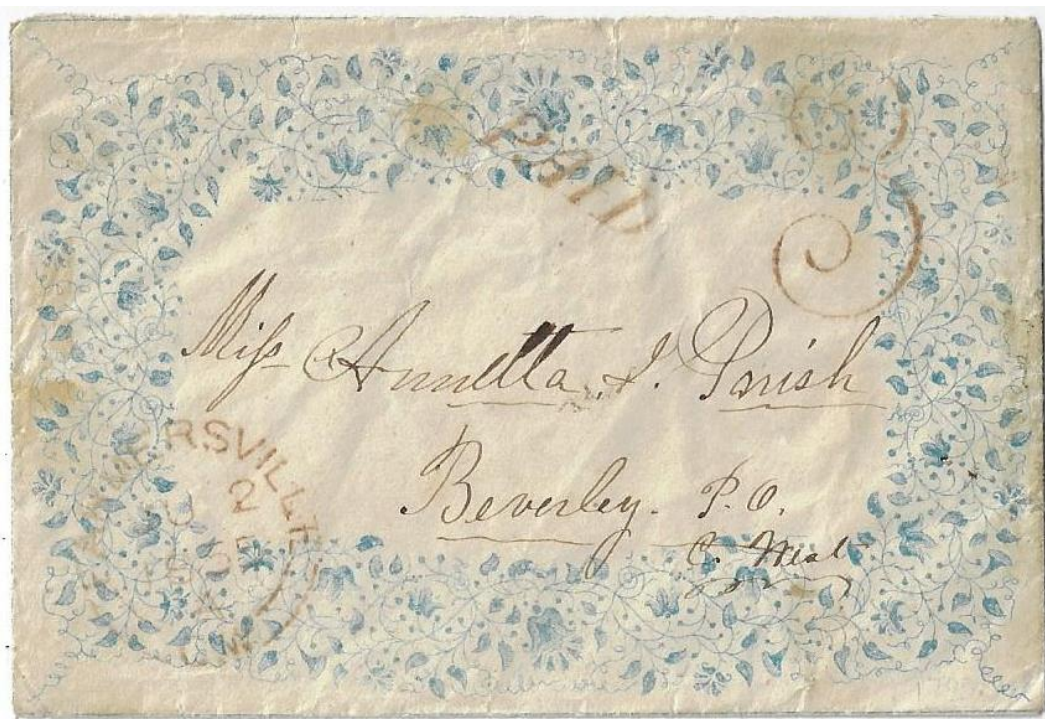 PAID
3
Miss Annetta J. Parish
Beverley. P.O.
C. West
FARMERSVILLE
2